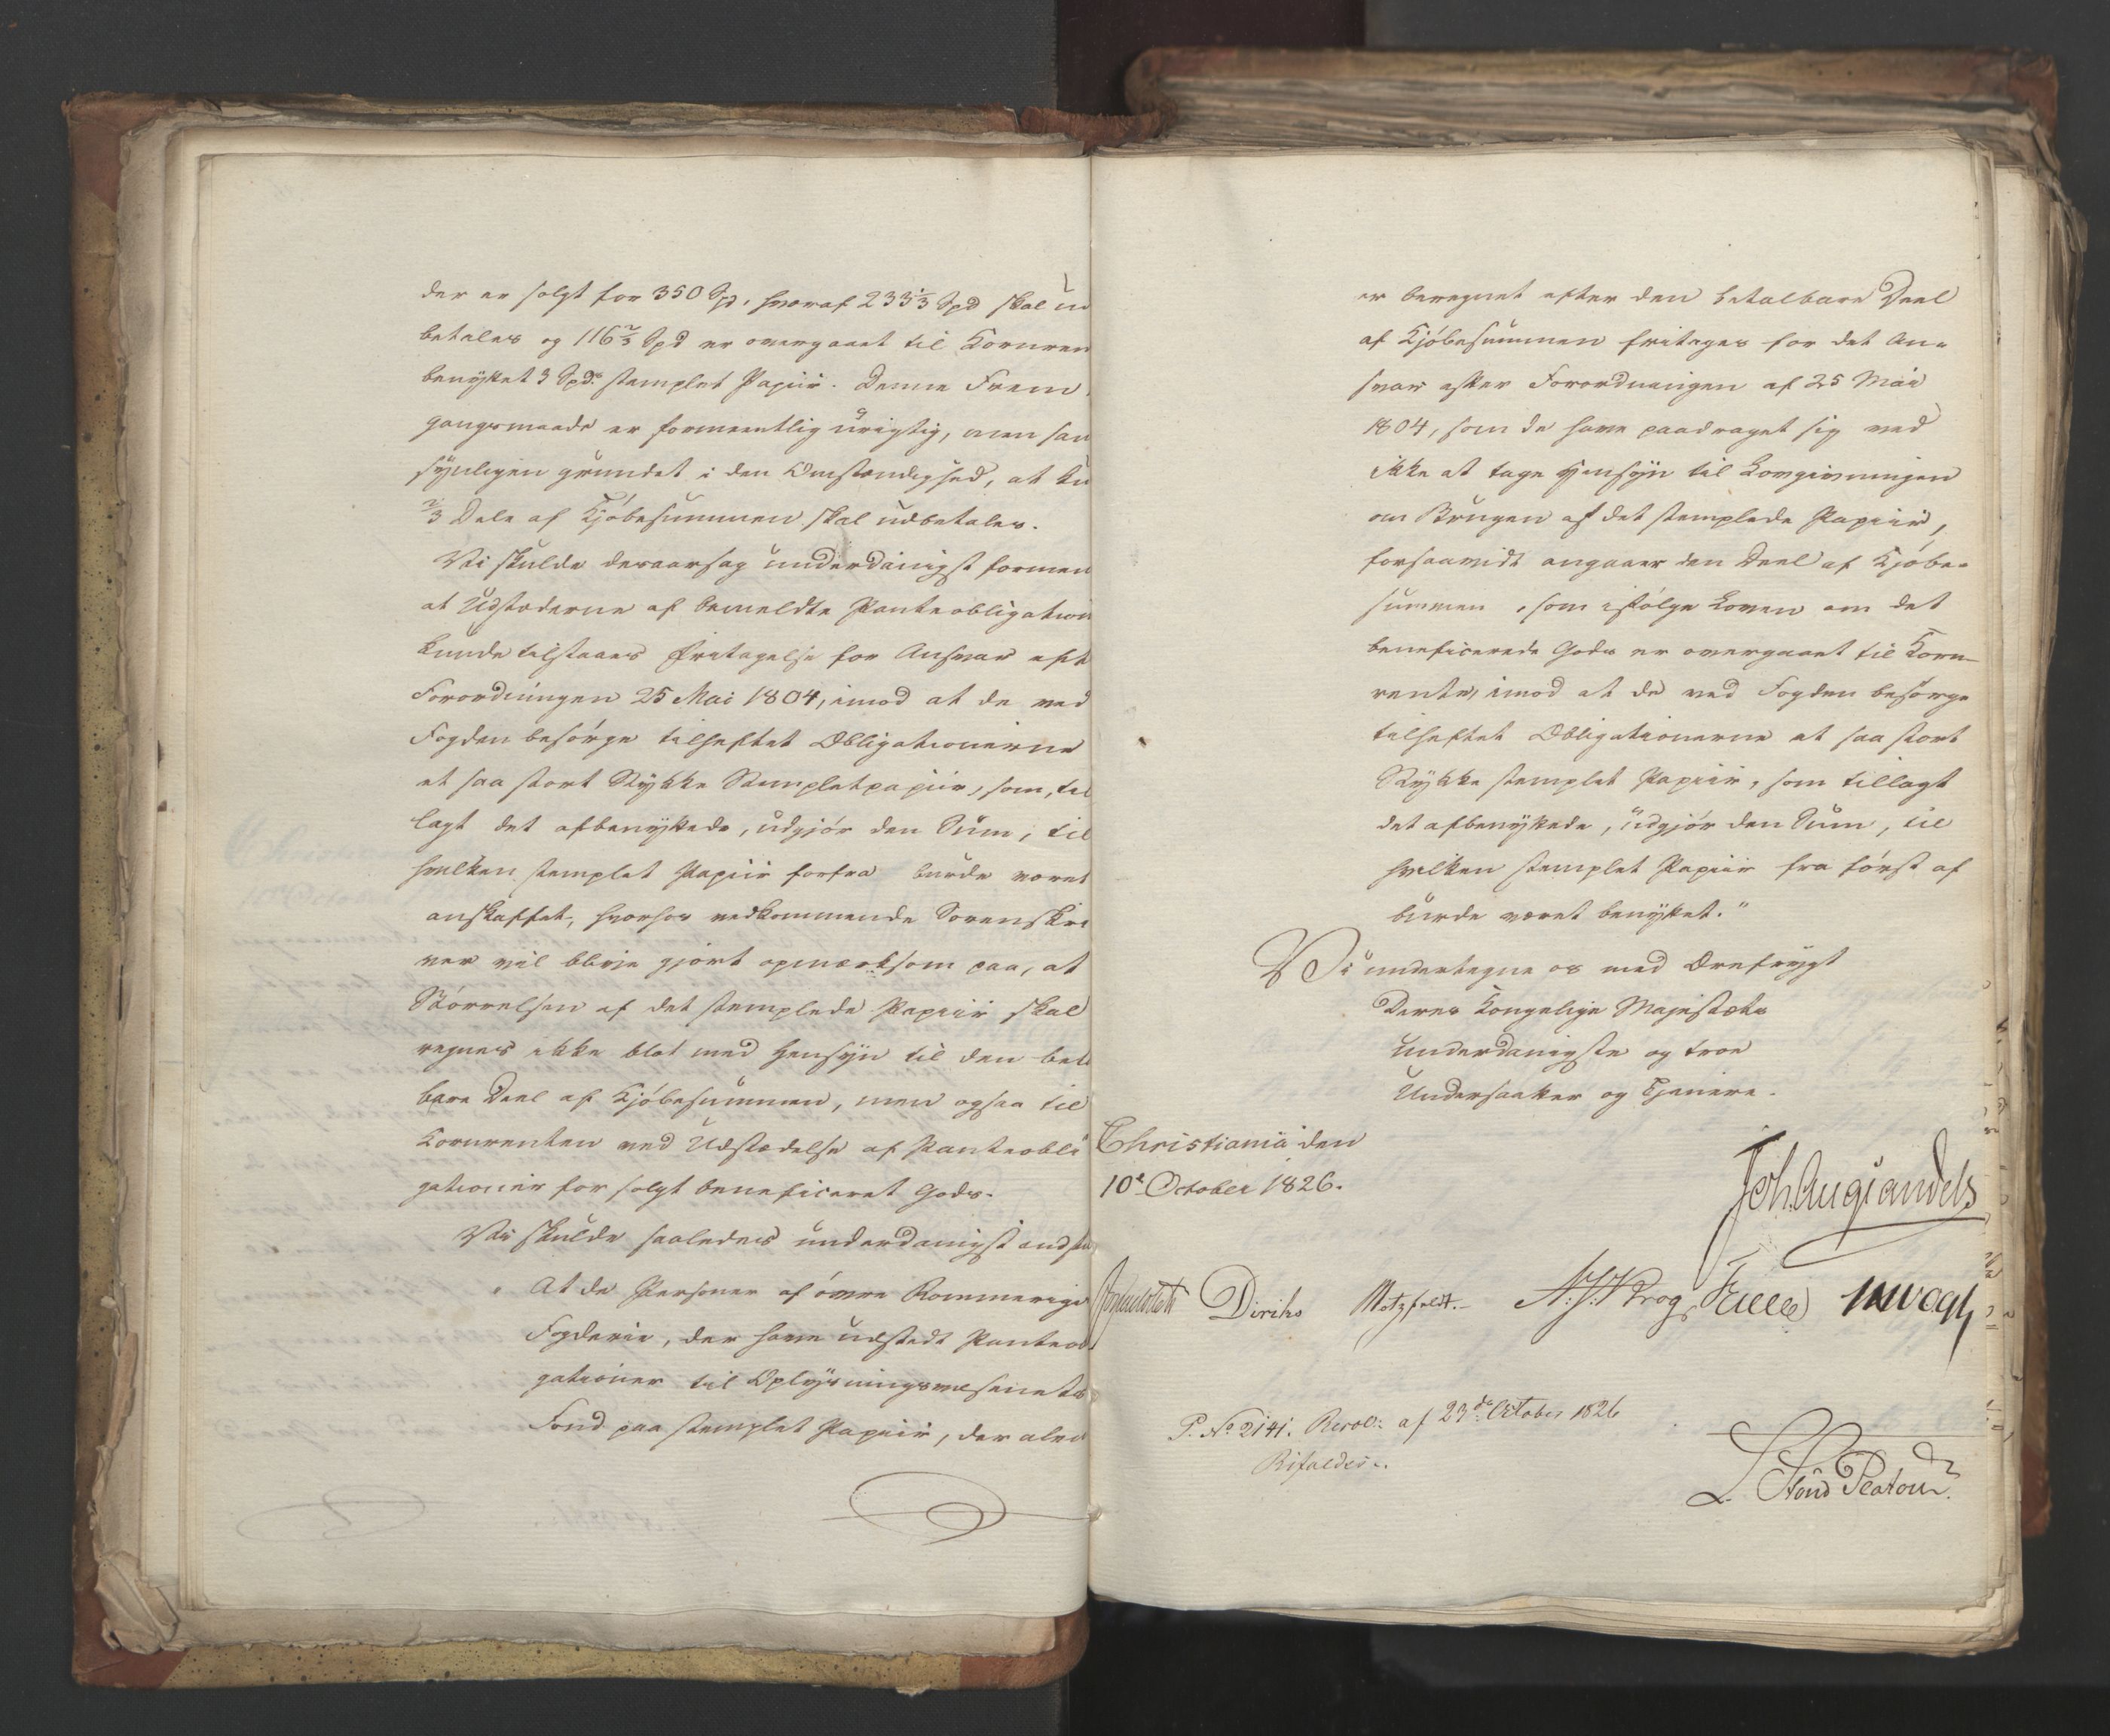 der er solgt for 350 Spd, hvoraf 233⅓ Spd skal ud
betales og 116⅔ Spd er overgaaet til Kornren
benyttet 3 Spd.s stemplet Papiir. Denne Frem
gangsmaade er formeentlig urigtig, men san
synligen grundet i den Omstændighed, at kun
⅔ Dele af Kjöbesummen skal udbetales.
Vi skulde desaarsag underdanigst formene
at Udstæderne af bemeldte Panteobligation
kunde tilstaaes Fritagelse for Ansvar eft
Forordningen 25 Mai 1804, imod at de ved
Fogden besörge tilheftet Obligationerne
et saa stort Stykke Stempletpapiir, som, til
lagt det afbenyttede, udgjör den Sum, til
hvilken stemplet Papiir forfra burde været
anskaffet, hvorhos vedkommende Sorenskri
ver vil blive gjort opmærksom paa, at
Störrelsen af det stemplede Papiir skal
regnes ikke blot med Hensyn til den beta
bare Deel af Kjöbesummen, men ogsaa til
Kornrenten ved Udstædelse af Panteobli
gationer for solgt beneficeret Gods.
Vi skulde saaledes underdanigst indst
" At de Personer af övre Rommerige
Fogderie, der have udstedt Panteob
gationer til Oplysningsvæsenets
Fond paa stemplet Papiir, der alen
er beregnet efter den betalbare Deel
af Kjöbesummen fritages for det An-
svar efter Forordningen af 25 Mai
1804, som de have paadraget sig ved
ikke at tage Hensyn til Lovgivningen
om Brugen af det stemplede Papiir,
forsaavidt angaaer den Deel af Kjöbe-
summen, som ifölge Loven om det
beneficerede Gods er overgaaet til Korn-
rente, imod at de ved Fogden besörge
tilheftet Obligationerne et saa stort
Stykke stemplet Papiir, som tillagt
det afbenyttede, udgjör den Sum, til
hvilken stemplet Papiir fra först af
burde været benyttet."
Vi undertegne os med Ærefrygt
Deres Kongelige Majestæts
underdanigste og troe
Undersaatter og Tjenere.
Christiania den
10de October 1826.
Joh. Aug. Sandels
Diriks Motzfeldt. A. S. Krog JHVogt
P. No 2141. Resol: af 23de October 1826
Bifaldes.
L. Stoud Platou.